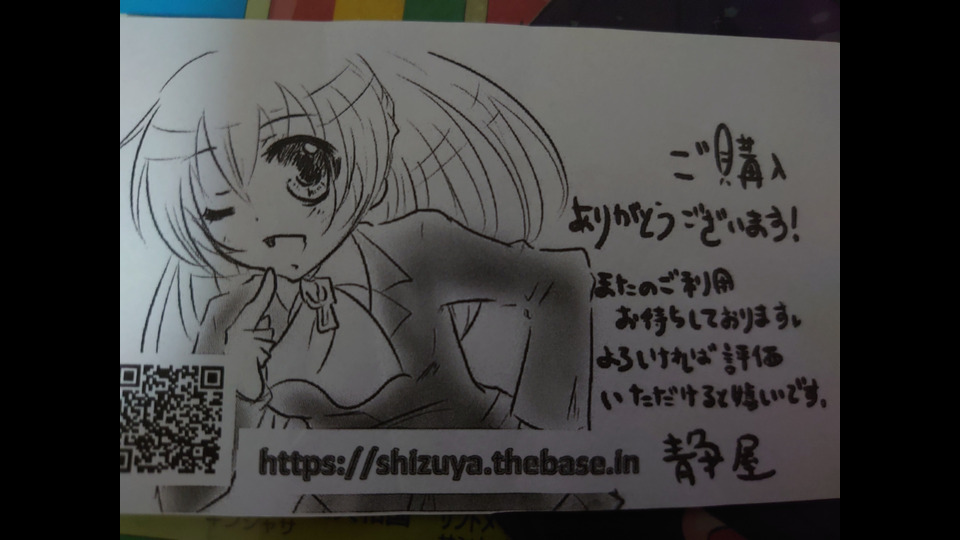 ご購入
ありがとうございます!
またのご利用
お待ちしております。
よろしければ評価
いただけると嬉しいです。
静屋
https://shizuya.thebase.in